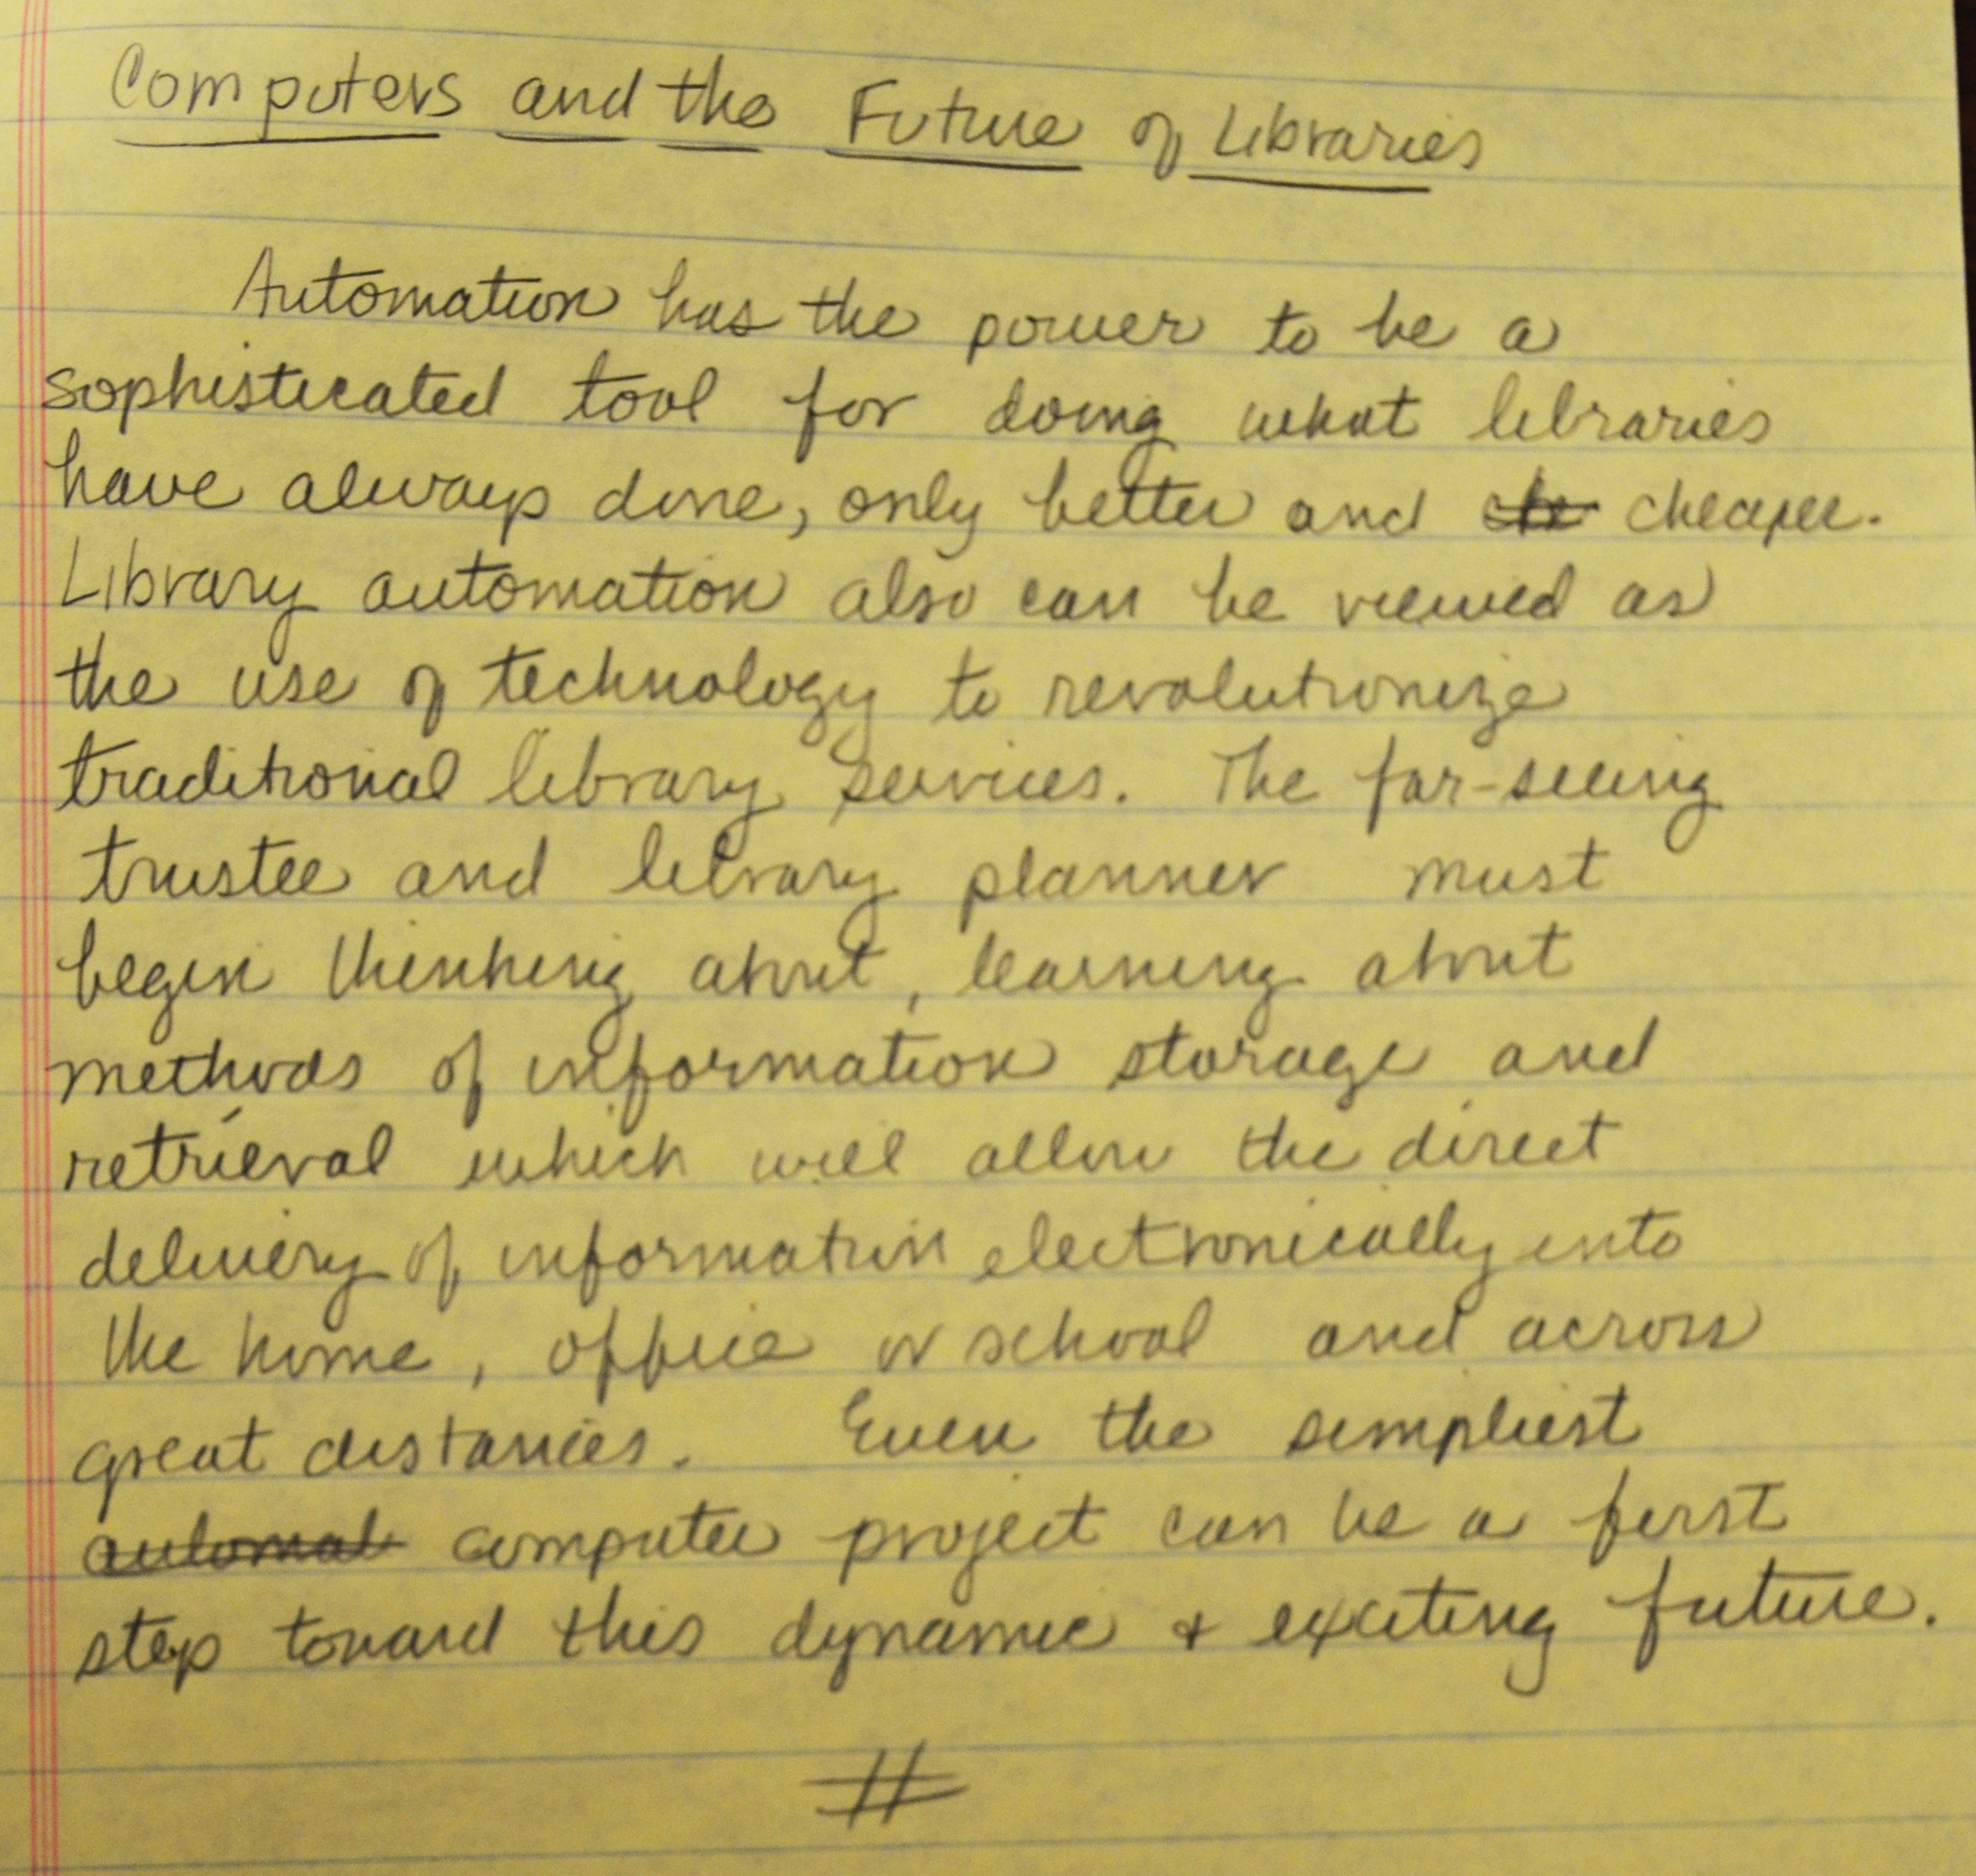 Computers and the Future of Libraries
Automation has the power to be a
sophisticated tool for doing what libraries
have always done, only better and che cheaper.
Library automation also can be viewed as
the use of technology to revolutionize
traditional library services. The far-seeing
trustee and library planner must
begin thinking about, learning about
methods of information storage and
retrieval which will allow the direct
delivery of information electronically into
the home, office or school and across
great distances. Even the simpliest
automat computer project can be a first
step toward this dynamic + exciting future.
#